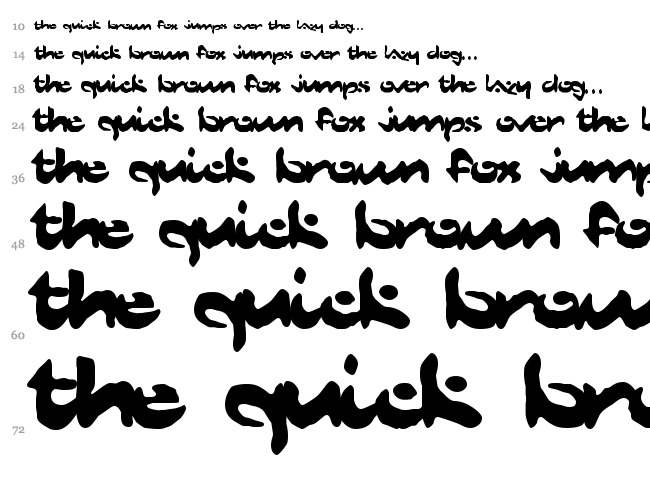 10 the quick brown fox jumps over the lazy dog...
14 the quick brown fox jumps over the lazy dog...
18 the quick brown fox jumps over the lazy dog...
24 the quick brown fox jumps over the l
36 the quick brown fox jump
48 the quick brown fo
60 the quick brow
72 the quick bro